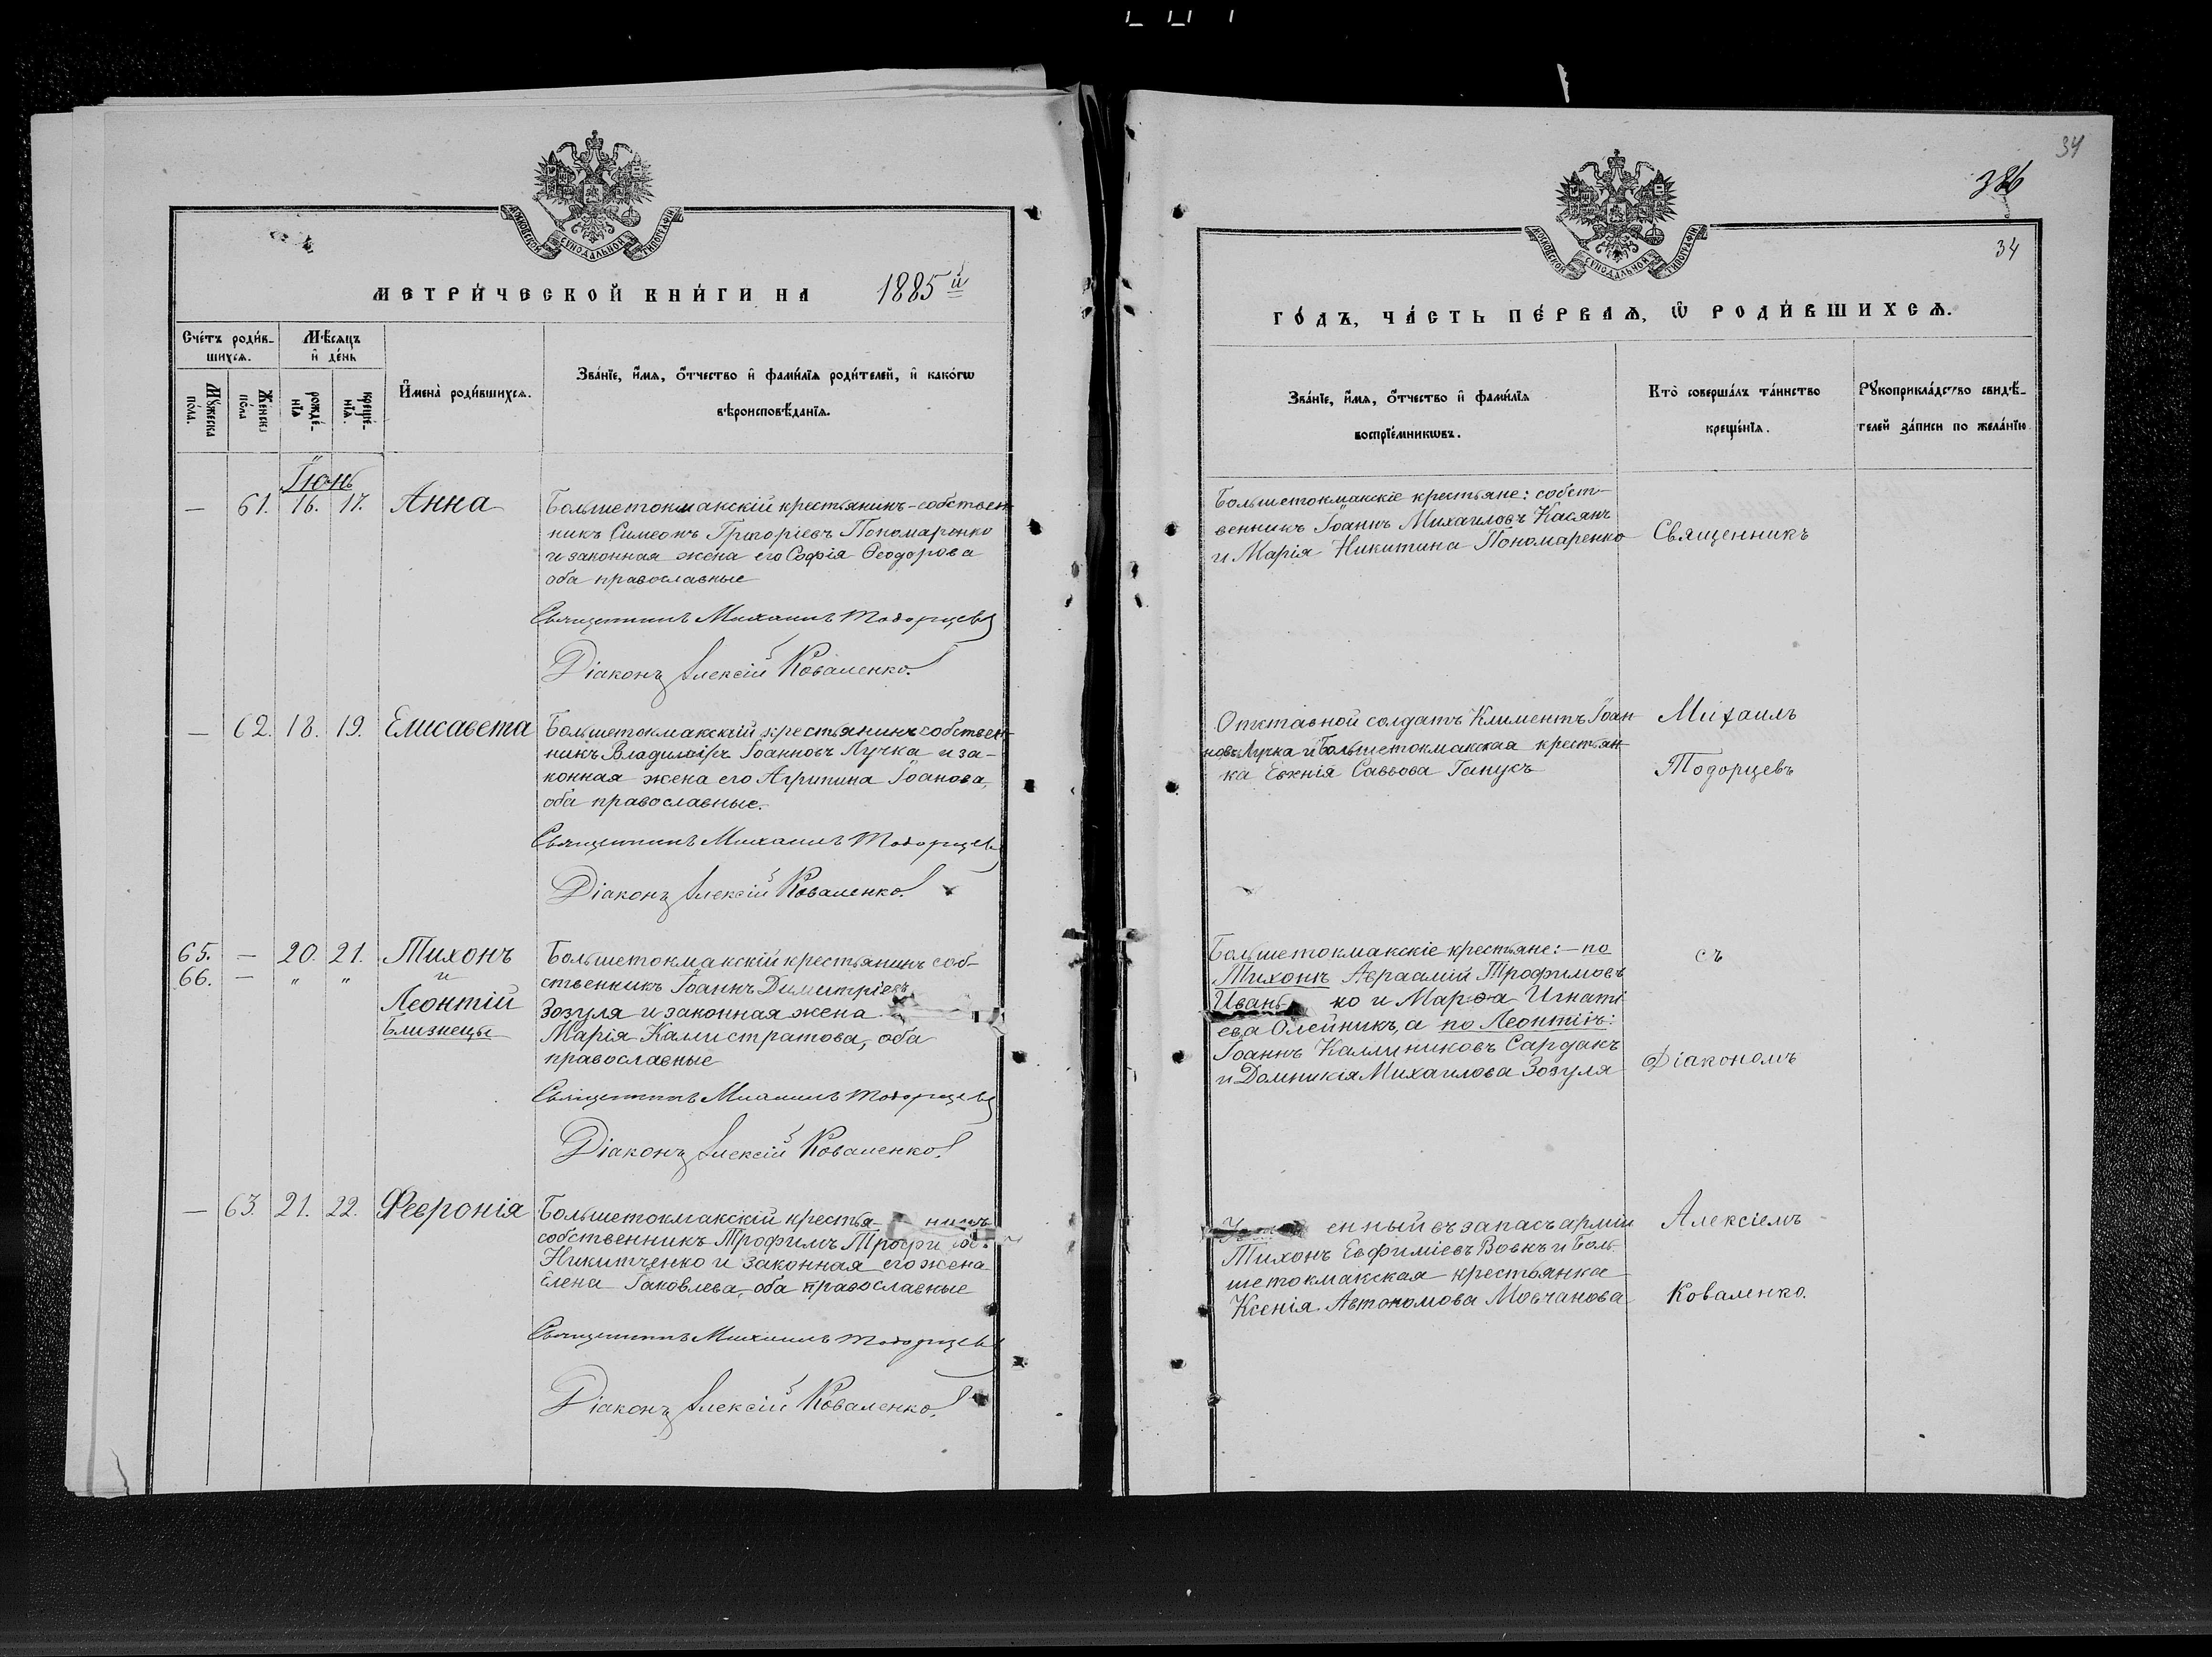 34
386
34
МОСКОВСКОЙ СУНОДАЛЬНОЙ ТИПОГРАФІИ
МЕТРИ́ЧЕСКОЙ КНИ́ГИ НА 1885й
Сче́тъ роди́в-
шихсѧ.
Мѣ́сѧцъ
и҆ де́нь
Мꙋ́жеска
по́ла.
Же́нска
по́ла
рожде́-
нїѧ
креще́-
нїѧ.
И҆мена̀ роди́вшихсѧ.
Зва́нїе, и҆́мѧ, ѻ҆́тчество и҆ фами́лїѧ роди́телей, и҆ како́гѡ
вѣроисповѣ́данїѧ.
Іюнь
— 61. 16. 17. Анна
Большетокмакскій крестьянинъ-собствен
никъ Симеонъ Григоріевъ Пономаренко
и законная жена его Софія Ѳеодорова
оба православные
Священникъ Михаилъ Тодорцевъ
Діаконъ Алексій Коваленко.
— 62. 18. 19. Елисавета
Большетокмакскій крестьянинъ собствен
никъ Владиміръ Іоанновъ Лучка и за-
конная жена его Агрипина Іоанова,
оба православные.
Священникъ Михаилъ Тодорцевъ
Діаконъ Алексій Коваленко.
65. — 20. 21. Тихонъ
66. — " " и
Леонтій
Близнецы
Большетокмакскій крестьянинъ соб-
ственникъ Іоаннъ Димитріевъ
Зозуля и законная жена
Марія Калистратова, оба
православные
Священникъ Михаилъ Тодорцевъ
Діаконъ Алексій Коваленко.
— 63. 21. 22. Февронія
Большетокмакскій крестья- нинъ
собственникъ Трофимъ
Никитченко и законная его жена
Елена Іаковлева, оба православные
Священникъ Михаилъ Тодорцевъ
Діаконъ Алексій Коваленко.
МОСКОВСКОЙ СУНОДАЛЬНОЙ ТИПОГРАФІИ
ГО́ДЪ, ЧА́СТЬ ПЕ́РВАѦ, Ѿ РОДИ́ВШИХСѦ.
Зва́нїе, и҆́мѧ, ѻ҆́тчество и҆ фами́лїѧ
воспрїе́мникѡвъ.
Кто̀ соверша́лъ та́инство
креще́нїѧ.
Рꙋкоприкла́дство свидѣ́-
телей за́писи по жела́нїю
Большетокмакскіе крестьяне: собст-
венникъ Іоаннъ Михаиловъ Касянъ
и Марія Никитина Пономаренко
Священникъ
Отставной солдатъ Климентъ Іоан
новъ Лучка и Большетокмакская крестьян
ка Евгенія Саввова Ганусъ
Михаилъ
Тодорцевъ
Большетокмакскіе крестьяне: — по
Тихонѣ Авраамій Трофимовъ
Ивань ко и Марѳа Игнаті
ева Олейникъ, а по Леонтіѣ:
Іоаннъ Каллиниковъ Сардакъ
и Домникія Михаилова Зозуля
съ
Діакономъ
енный въ запасъ арміи
Тихонъ Евфиміевъ Вовкъ и Боль
шетокмакская крестьянка
Ксенія Автономова Мовчанова
Алексіемъ
Коваленко.